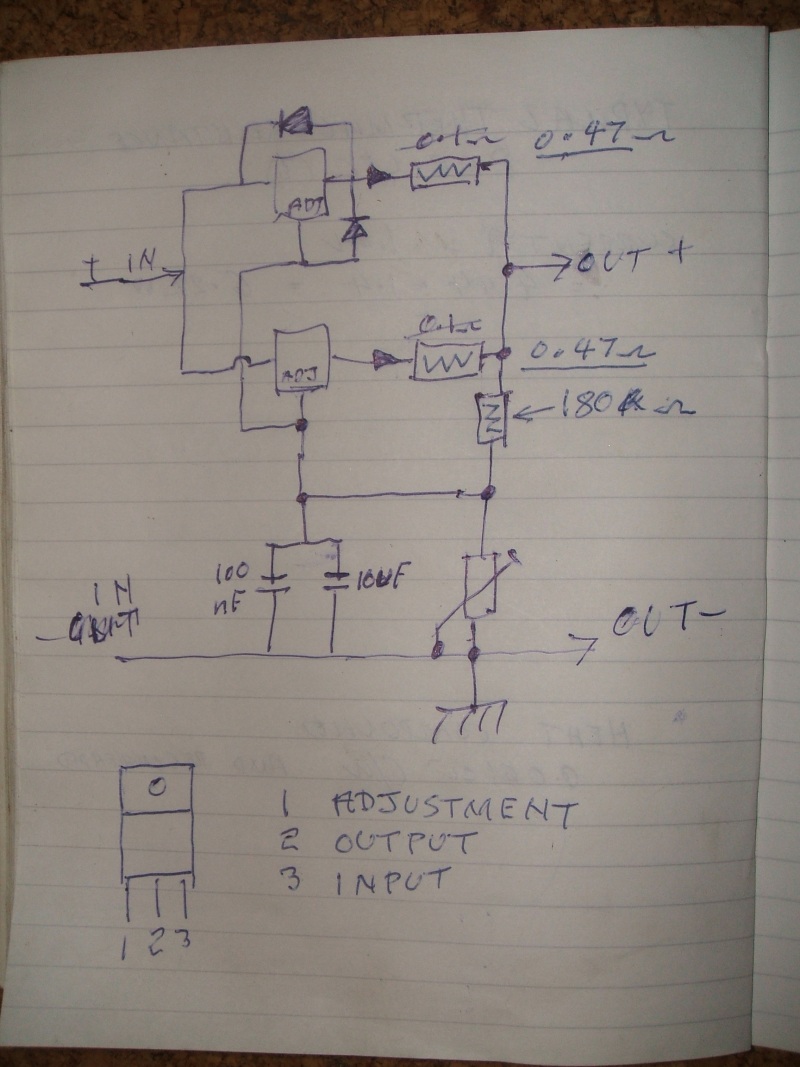 0.47Ω
ADJ
+ IN
OUT +
0.47Ω
ADJ
180 Ω
100 nF
10uF
IN
-
OUT-
1 ADJUSTMENT
2 OUTPUT
3 INPUT
1 2 3